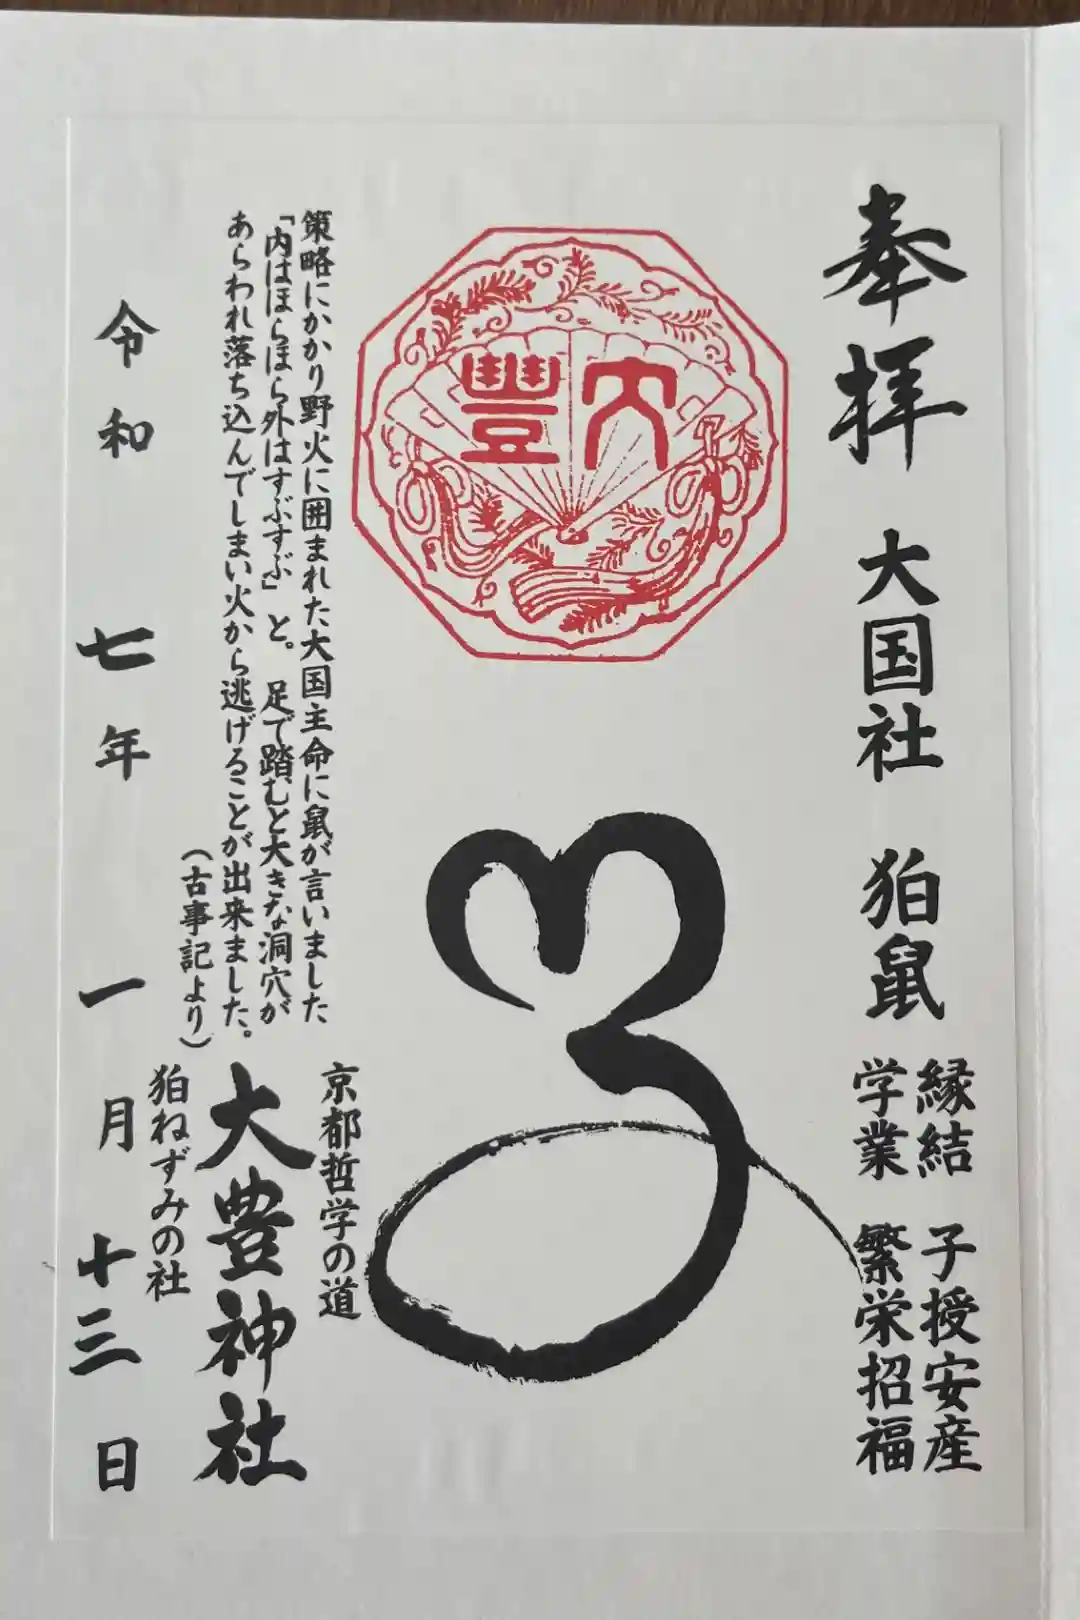 奉拝 大国社 狛鼠
縁結 子授安産
学業 繁栄招福
大豐
京都哲学の道
策略にかかり野火に囲まれた大国主命に鼠が言いました
「内はほらほら外はすぶすぶ」と。足で踏むと大きな洞穴が
あらわれ落ち込んでしまい火から逃げることが出来ました。
(古事記より)
大豊神社
狛ねずみの社
令和七年一月十三日